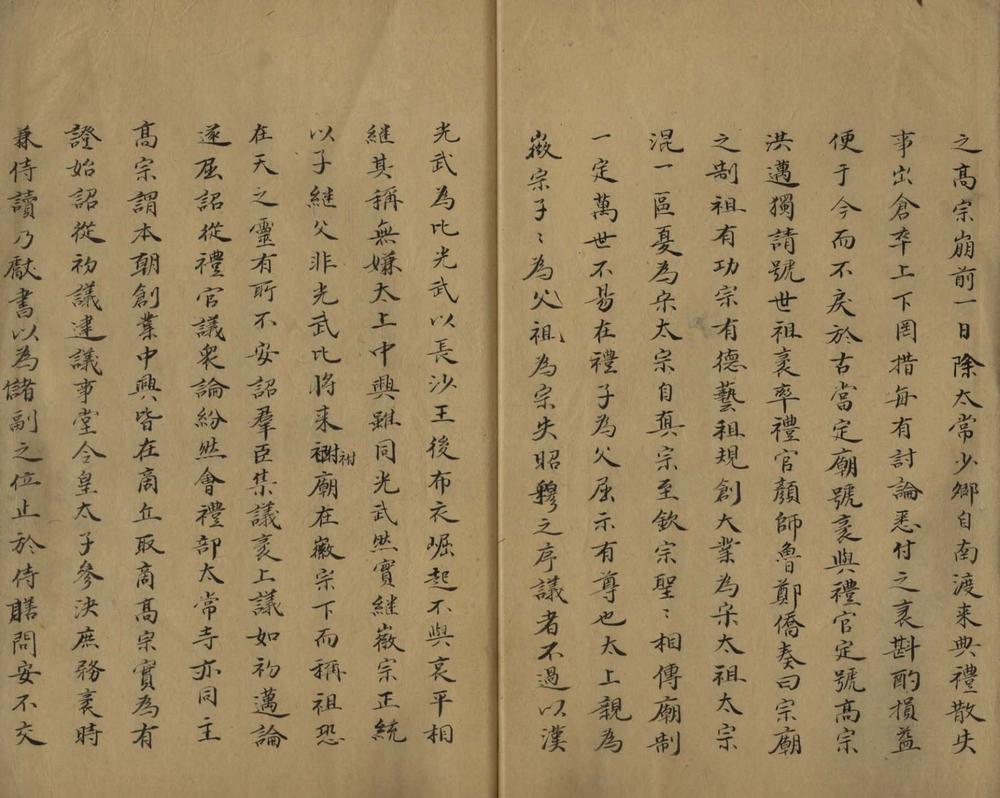 之髙宗崩前一日除太常少鄉自南渡来典禮散失
事出倉卒上下罔措每有討論悉付之袤斟酌損益
便于今而不戾於古當定廟號袤與禮官定號髙宗
洪邁獨請號世祖袤率禮官顔師魯鄭僑奏曰宗廟
之制祖有功宗有德藝祖規創大業為宋太祖太宗
混一區夏為宋太宗自真宗至欽宗聖〻相傳廟制
一定萬世不易在禮子為父屈示有尊也太上親為
徽宗子〻為父祖為宗失昭穆之序議者不過以漢
光武為比光武以長沙王後布衣崛起不與哀平相
継其稱無嫌太上中興雖同光武然實継徽宗正統
以子継父非光武比將来祔祔廟在徽宗下而稱祖恐
在天之靈有所不安詔羣臣集議袤上議如初邁論
遂屈詔從禮官議衆論紛然會禮部太常寺亦同主
髙宗謂本朝創業中興皆在商丘取商髙宗實為有
證始詔從初議建議事堂令皇太子參決庶務袤時
兼侍讀乃獻書以為儲副之位止於侍膳問安不交